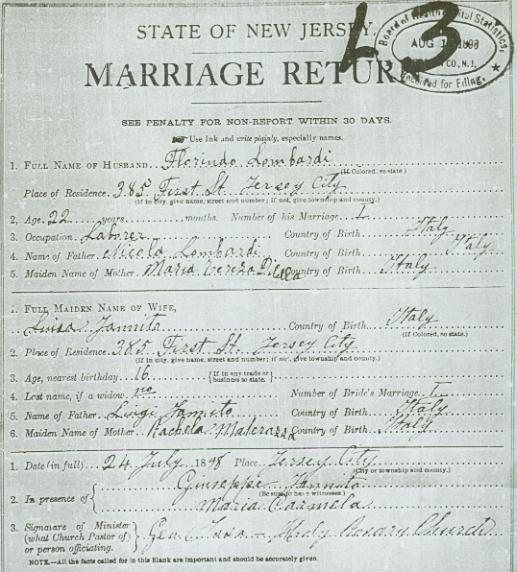 STATE OF NEW JERSEY.
L 3
Board of Health & Vital Statistics.
AUG 1 1898
CO., N.J.
Received for Filing.
MARRIAGE RETURN
SEE PENALTY FOR NON-REPORT WITHIN 30 DAYS.
Use Ink and write plainly, especially names.
1. FULL NAME OF HUSBAND Florindo Lombardi
(If Colored, so state.)
Place of Residence. 385 First St. Jersey City
(If in city, give name, street and number; if not, give township and county.)
2. Age. 22 years months. Number of his Marriage. 1
3. Occupation. Laborer Country of Birth Italy
4. Name of Father Nicola Lombardi Country of Birth Italy
5. Maiden Name of Mother. Maria Tereza Country of Birth Italy
1. FULL MAIDEN NAME OF WIFE,
Luisa Iannito Country of Birth Italy
(If Colored, so state.)
2. Place of Residence. 385 First St. Jersey City
(If in city, give name, street and number; if not, give township and county.)
3. Age, nearest birthday 16 {If in any trade or business so state.}
4. Last name, if a widow no Number of Bride's Marriage. 1
5. Name of Father Luigi Iannito Country of Birth Italy
6. Maiden Name of Mother Rachela Country of Birth Italy
1. Date (in full) 24 July 1898 Place, Jersey City
(City or township and county.)
2. In presence of { Giuseppe Iannito
(Be sure to have 2 witnesses)
Maria Carmela
3. Signature of Minister
(what Church Pastor of)
or person officiating. Holy Rosary Church
NOTE.—All the facts called for in this Blank are important and should be accurately given.